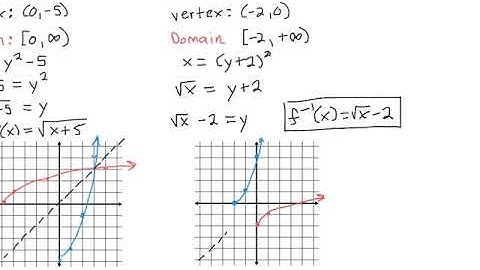 x: (0,-5)
n: [0, ∞)
y²-5
5 = y²
-5 = y
(x) = √x+5
vertex: (-2,0)
Domain [-2, +∞)
x = (y+2)²
√x = y+2
√x - 2 = y
f⁻¹(x) = √x - 2